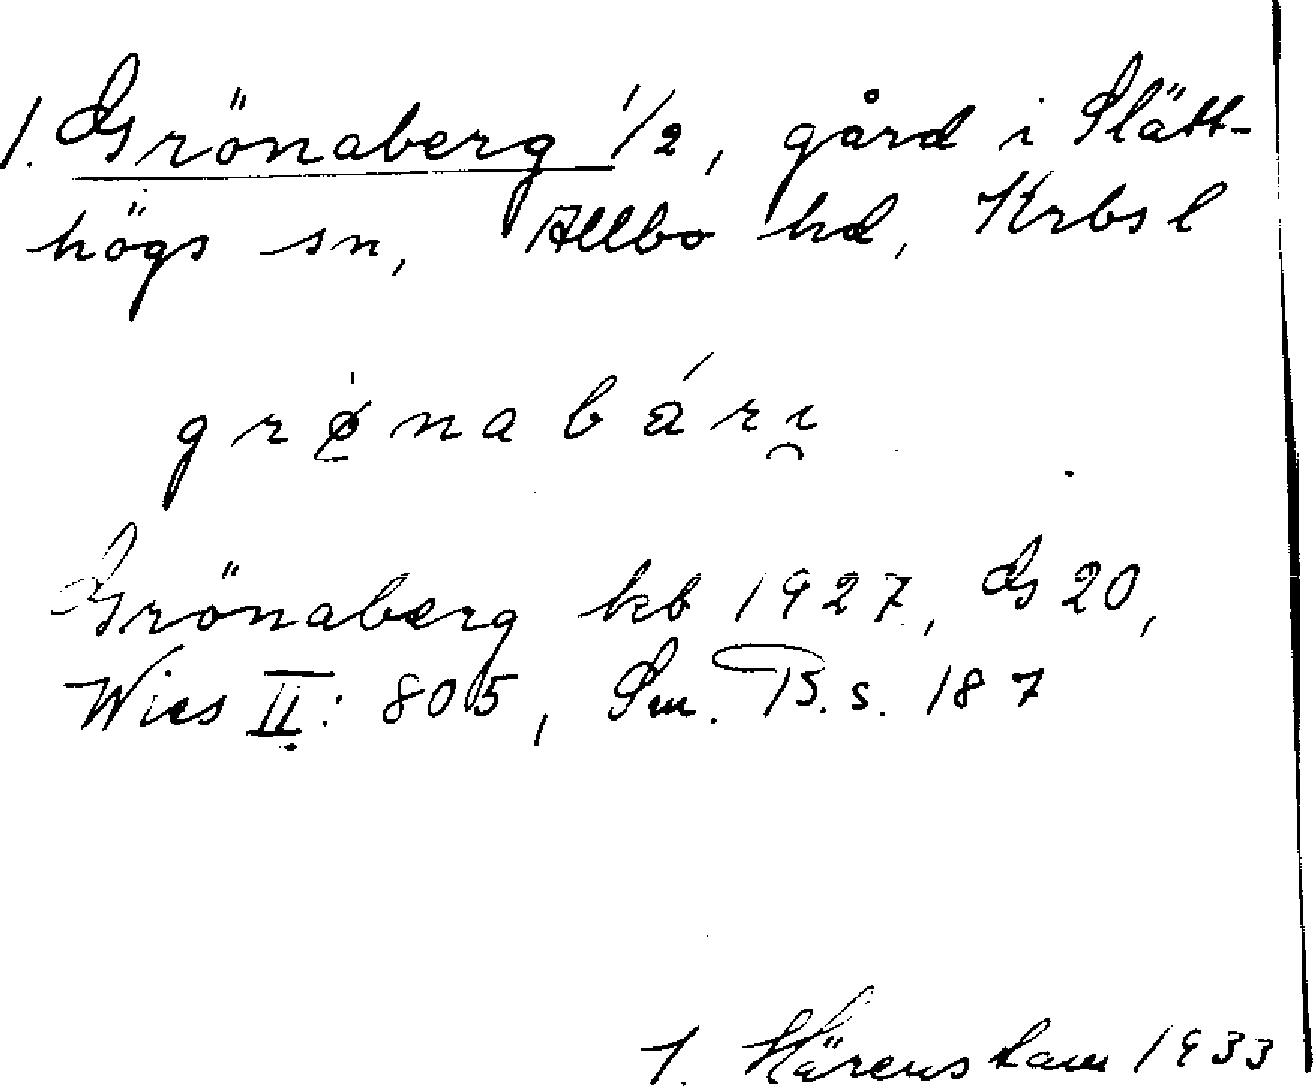 1. Grönaberg 1/2, gård i Slätt-
högs sn, Allbo hd, Krbs l
grǿ̣nabári̯
Grönaberg kb 1927, GS 20,
Wies II: 805, Sm. B. s. 187
1933